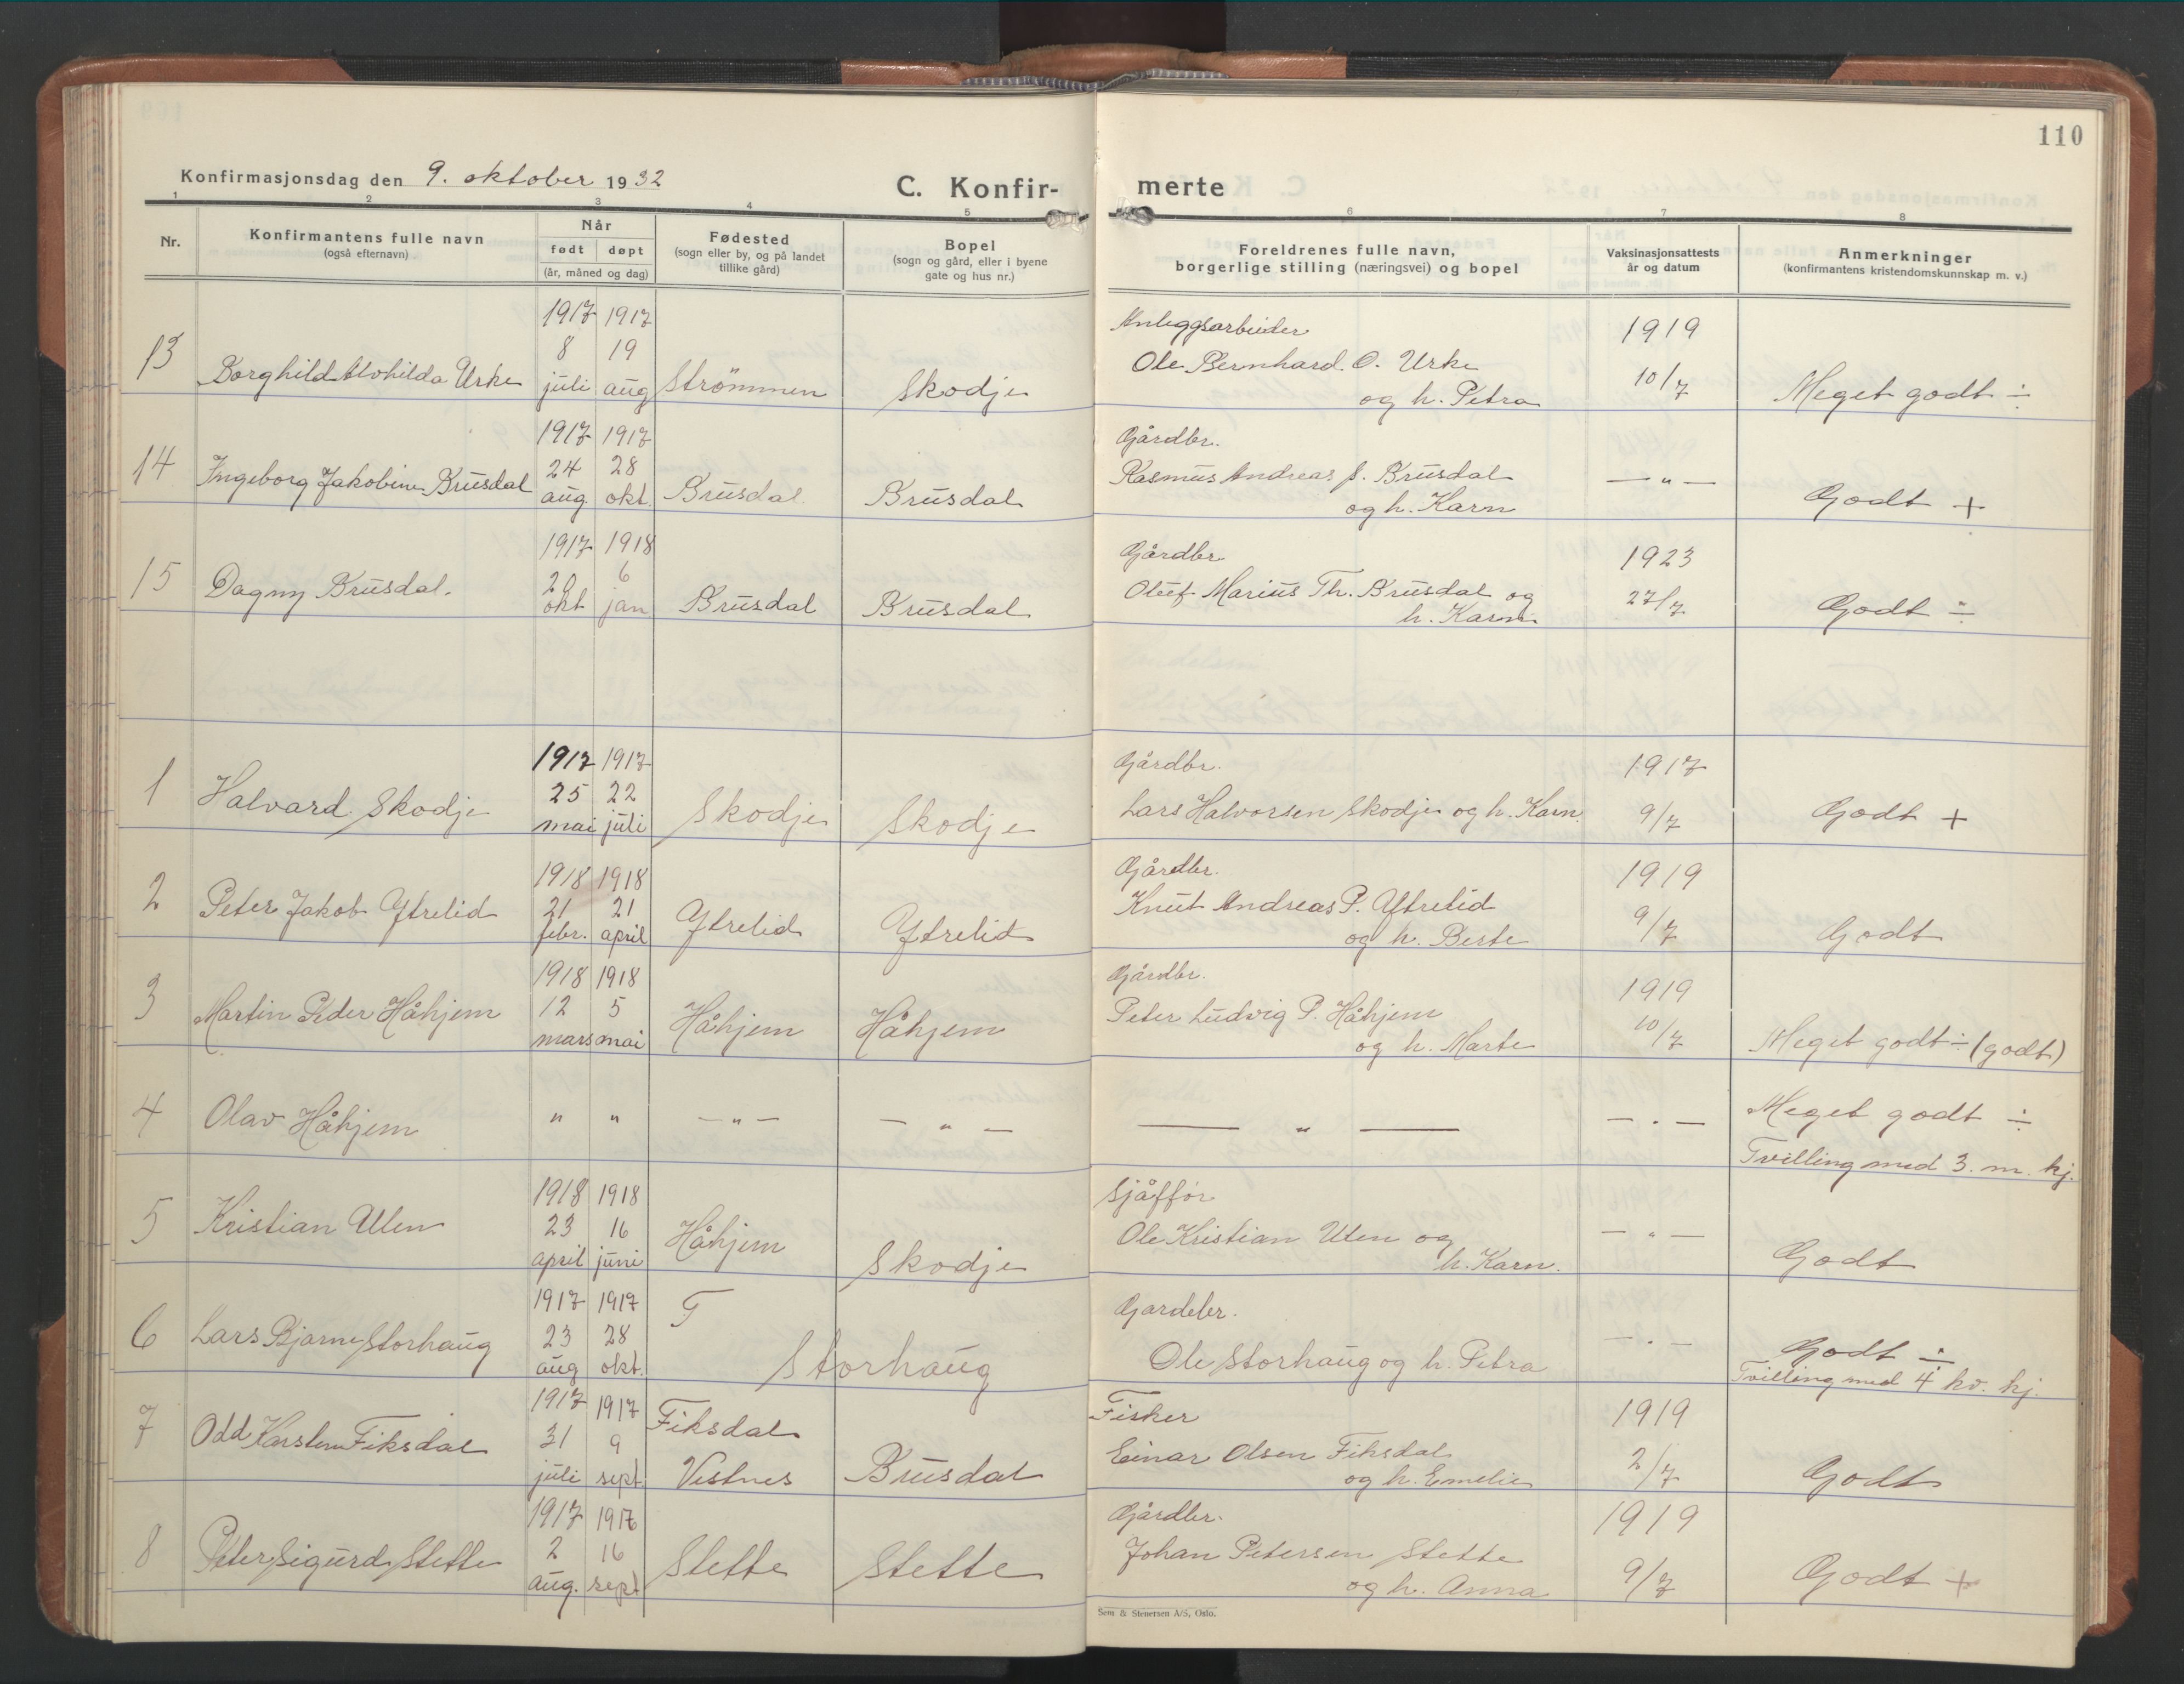 110
Konfirmasjonsdag den 9. oktober 1932
C. Konfirmerte
1 2 3 4 5 6 7 8
Nr.
Konfirmantens fulle navn
(også efternavn)
Når
født døpt
(år, måned og dag)
Fødested
(sogn eller by, og på landet
tillike gård)
Bopel
(sogn og gård, eller i byene
gate og hus nr.)
Foreldrenes fulle navn,
borgerlige stilling (næringsvei) og bopel
Vaksinasjonsattests
år og datum
Anmerkninger
(konfirmantens kristendomskunnskap m. v.)
1917 1917 Anleggsarbeider 1919
13 8 19 Ole Bernhard. O. Urke 10/7
Borghild Alvhilda Urke juli aug Strömmen Skodje og h. Petra Meget godt ÷
1917 1917 Gårdbr.
14 Ingeborg Jakobine Brusdal 24 28 Rasmus Andreas S. Brusdal — " —
aug okt. Brusdal Brusdal og h. Karn Godt +
1917 1918 Gårdbr. 1923
15 Dagny Brusdal. 20 6 Oluf Marius Th. Brusdal og 27/7
okt jan Brusdal Brusdal h. Karn Godt ÷
1917 1917 Gårdbr. 1917
1 Halvard Skodje 25 22 Skodje Skodje Lars Halvorsen Skodje og h. Karn. 9/7 Godt +
mai juli
1918 1918 Gårdbr. 1919
2 Peter Jakob Ytrelid 21 21 Ytrelid Ytrelid Knut Andreas P. Ytrelid 9/7
febr. april og h. Berte Godt
1918 1918 Gårdbr. 1919
3 Martin Peder Håhjem 12 5 Håhjem Håhjem Peter Ludvig P. Håhjem 10/7
mars mai og h. Marte Meget godt ÷ (godt)
4 Olav Håhjem " " — " — — " — — " — — " — Meget godt ÷
Tvilling med 3. m. kj.
1918 1918 Sjåffør
5 Kristian Ulen 23 16 Håhjem Ole Kristian Ulen og — " —
april juni Skodje h. Karn. Godt
1917 1917 T Gardebr.
6 Lars Bjarne Storhaug 23 28 Storhaug Ole Storhaug og h. Petra — " — Godt ÷
aug okt. Tvilling med 4 kv. kj.
1917 1917 Fiksdal Fisker 1919
7 Odd Karsten Fiksdal 31 9 Einar Olsen Fiksdal 2/7
juli sept. Vestnes Brusdal og h. Emelie Godt
1917 1917 Gårdbr. 1919
8 Peter Sigurd Stette 2 16 Stette Stette Johan Petersen Stette 9/7
aug. sept og h. Anna Godt +
Sem & Stenersen A/S, Oslo.